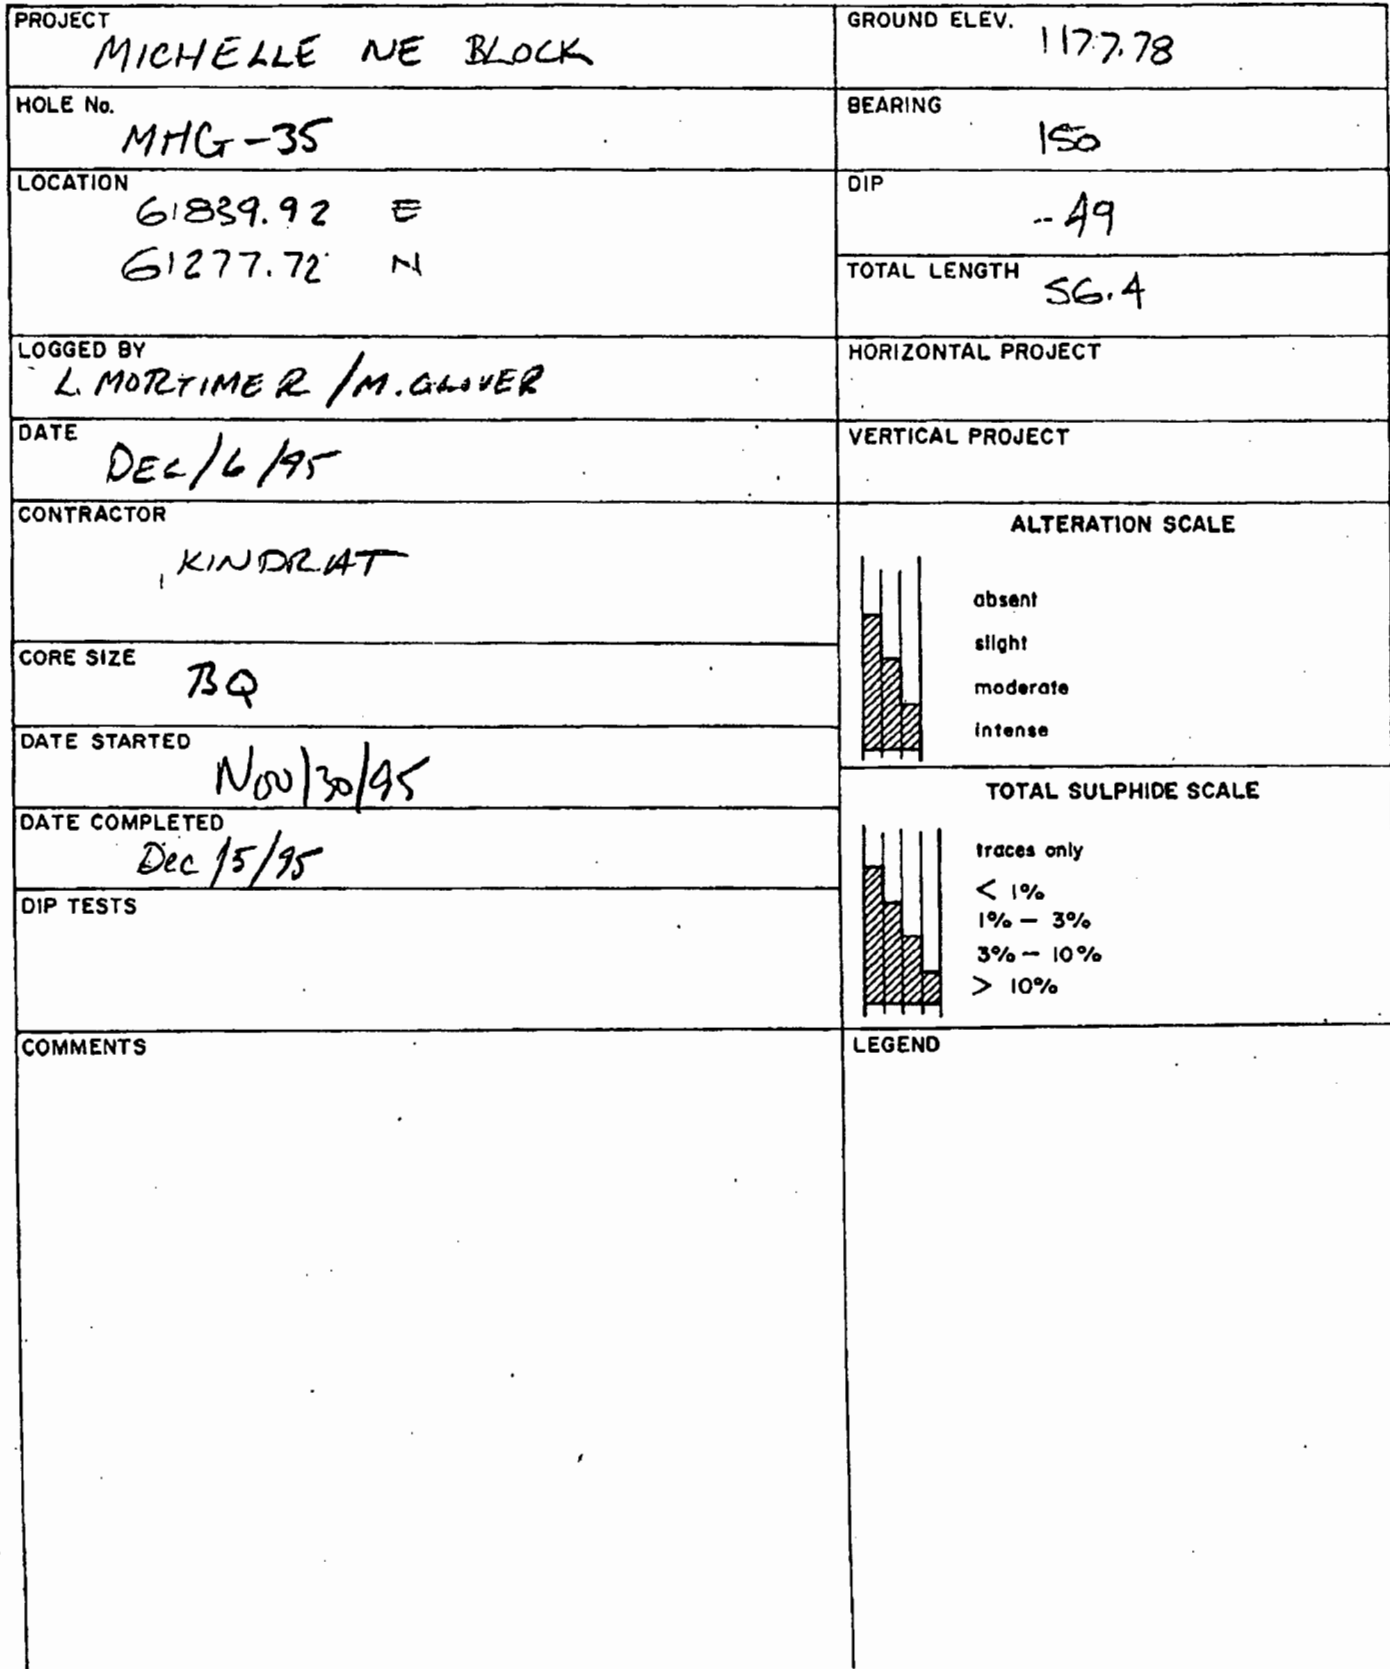 PROJECT
MICHELLE NE BLOCK
HOLE No.
MHG-35
LOCATION
61839.92 E
61277.72 N
LOGGED BY
L. MORTIMER / M. GLOVER
DATE
DEC/6/95
CONTRACTOR
KINDRAT
CORE SIZE
BQ
DATE STARTED
Nov/30/95
DATE COMPLETED
Dec/5/95
DIP TESTS
COMMENTS
GROUND ELEV.
1177.78
BEARING
150
DIP
-49
TOTAL LENGTH
56.4
HORIZONTAL PROJECT
VERTICAL PROJECT
ALTERATION SCALE
absent
slight
moderate
intense
TOTAL SULPHIDE SCALE
traces only
< 1%
1% - 3%
3% - 10%
> 10%
LEGEND